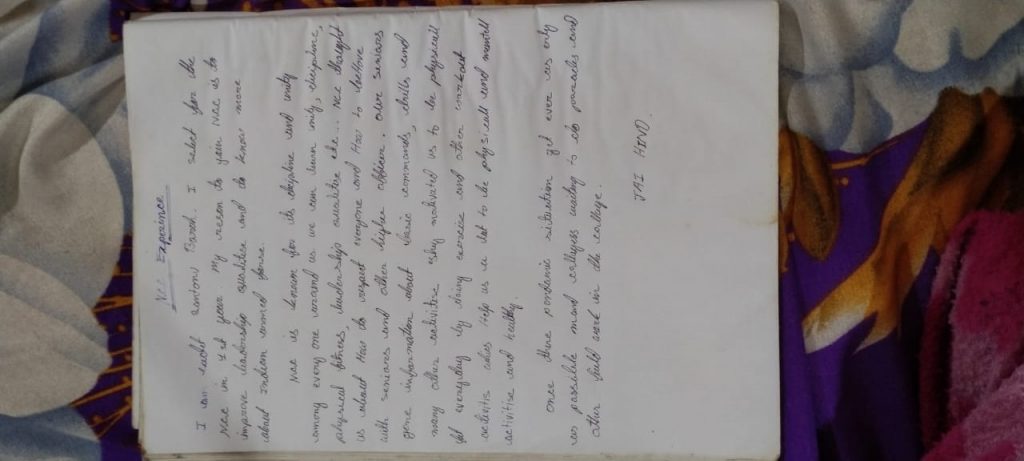 Ncc Experince
I am cadet Santonu Barah. I select for the
Ncc in 1st year. My reson to join Ncc is to
improve leadership qualities and to know more
about Indian armed force.
Ncc is known for its disipline and unity
among every one around us we can learn unity, disipline,
physical fitness, leadership qualities etc... Ncc thought
us about How to respect everyone and How to behave
with seniors and other higher officer. Our seniors
gave information about basic commands, drills and
many other activities they motivated us to be physicall
fit everyday by doing exercise and other workout
activitis which help us a lot to be physicall and mentall
activitise and healthy.
once there pandamic situation get over as early
as possible mand colleges waiting to do parades and
other field work in the college.
JAI HIND.